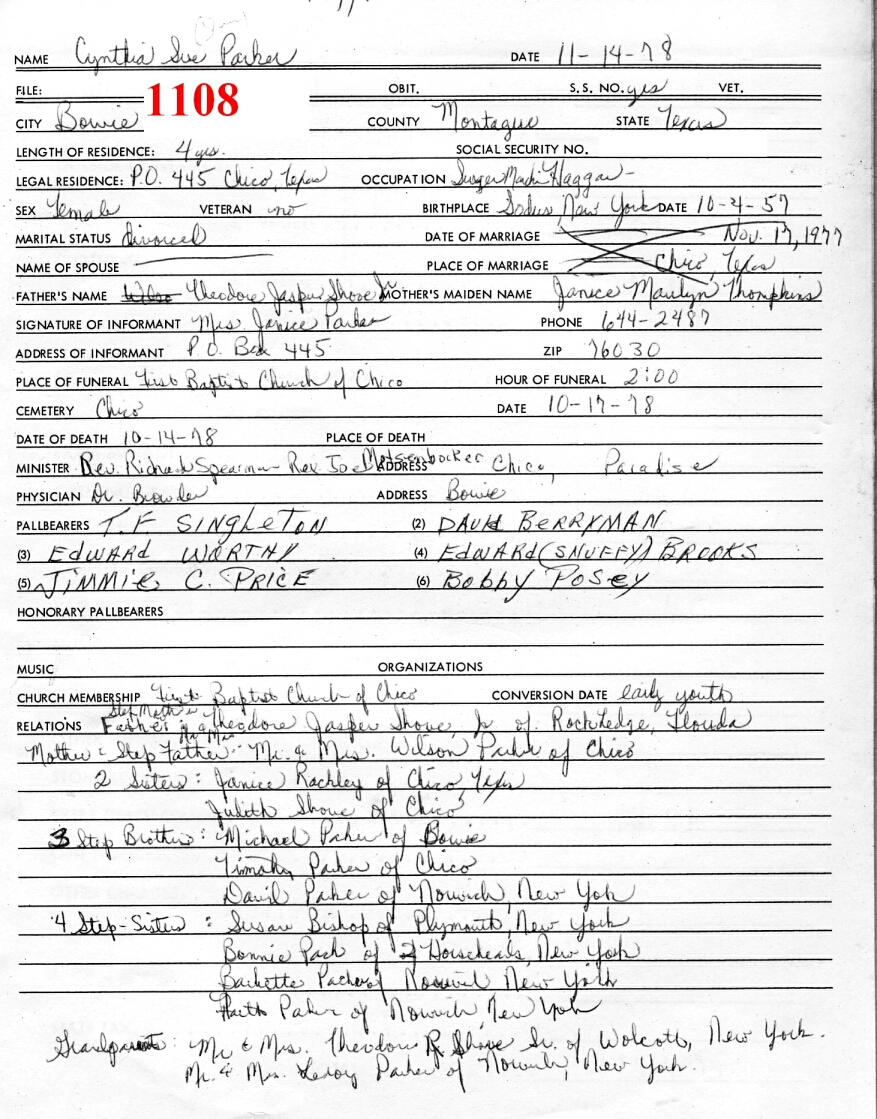 NAME Cynthia Sue Parker DATE 11-14-78
FILE: 1108 OBIT. S.S. NO. yes VET.
CITY Bowie COUNTY Montague STATE Texas
LENGTH OF RESIDENCE: 4 yrs. SOCIAL SECURITY NO.
LEGAL RESIDENCE: P.O. 445 Chico, Texas OCCUPATION Haggar
SEX Female VETERAN no BIRTHPLACE Sodus, New York DATE 10-4-57
MARITAL STATUS divorced DATE OF MARRIAGE Nov. 17, 1977
NAME OF SPOUSE PLACE OF MARRIAGE Chico, Texas
FATHER'S NAME Theodore Jasper Shove Jr MOTHER'S MAIDEN NAME Janice Marilyn Thompkins
SIGNATURE OF INFORMANT Mrs. Janice Parker PHONE 644-2487
ADDRESS OF INFORMANT P.O. Box 445 ZIP 76030
PLACE OF FUNERAL First Baptist Church of Chico HOUR OF FUNERAL 2:00
CEMETERY Chico DATE 10-17-78
DATE OF DEATH 10-14-78 PLACE OF DEATH
MINISTER Rev. Richard Spearman Rev. Joe ADDRESS Chico, Paradise
PHYSICIAN Dr. Browder ADDRESS Bowie
PALLBEARERS T.F SINGLETON (2) DAVID BERRYMAN
(3) EDWARD WORTHY (4) EDWARD (SNUFFY) BROOKS
(5) JIMMIE C. PRICE (6) BOBBY POSEY
HONORARY PALLBEARERS
MUSIC ORGANIZATIONS
CHURCH MEMBERSHIP First Baptist Church of Chico CONVERSION DATE early youth
RELATIONS Father Step Mother Mr & Mrs Theodore Jasper Shove, Jr of Rockledge, Florida
Mother & Step Father: Mr. & Mrs. Wilson Parker of Chico
2 Sisters: Janice Rachley of Chico, Texas
Judith Shove of Chico
3 Step Brothers: Michael Parker of Bowie
Timothy Parker of Chico
David Parker of Norwich, New York
4 Step-Sisters: Susan Bishop of Plymouth, New York
Bonnie Pack of Horseheads, New York
Parker of Norwich New York
Faith Parker of Norwich, New York
Grandparents: Mr & Mrs. Theodore R Shove Sr. of Wolcott, New York.
Mr. & Mrs. Leroy Parker of Norwich, New York.